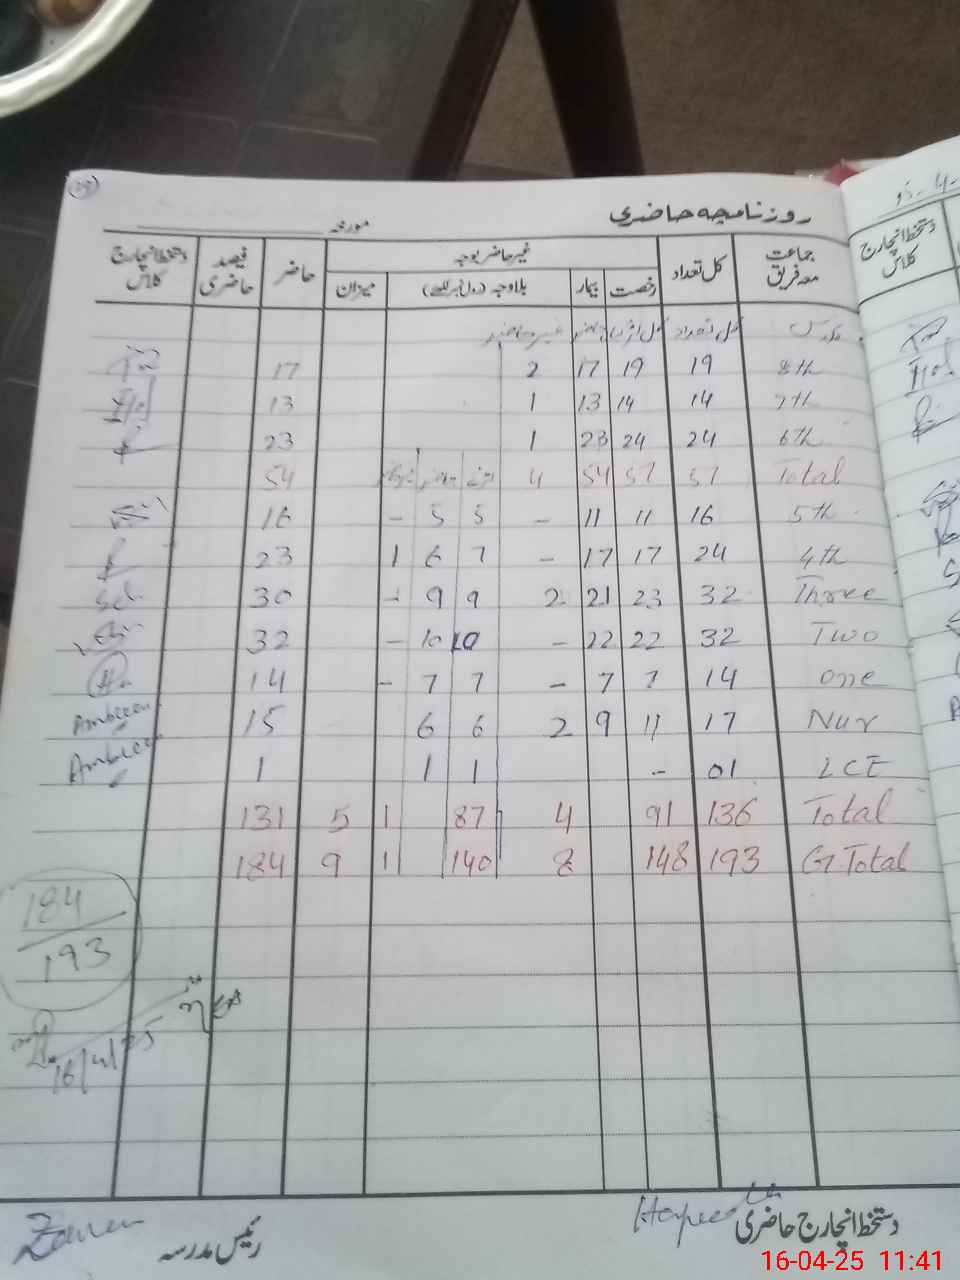 روزنامچہ حاضری
مورخہ
جماعت معہ فریق کل تعداد غیر حاضر بوجہ حاضر فیصد حاضری دستخط انچارج کلاس
رخصت بیمار بلاوجہ (رول نمبر لکھیے) میزان
کل تعداد غیر حاضر
8th 19 19 17 2 17
7th 14 14 13 1 13
6th 24 24 23 1 23
Total 57 57 54 4 54
5th 16 11 11 - 5 5 - 16
4th 24 17 17 - 7 6 1 23
Three 32 23 21 2 9 9 - 30
Two 32 22 22 - 10 10 - 32
one 14 7 7 - 7 7 - 14
Nur 17 11 9 2 6 6 15 Ambreen
LCE 01 - 1 1 1 Ambreen
Total 136 91 4 87 1 5 131
G.Total 193 148 8 140 1 9 184
184
193
16/4/25
دستخط انچارج حاضری
رئیس مدرسہ
دستخط انچارج کلاس
16-04-25 11:41